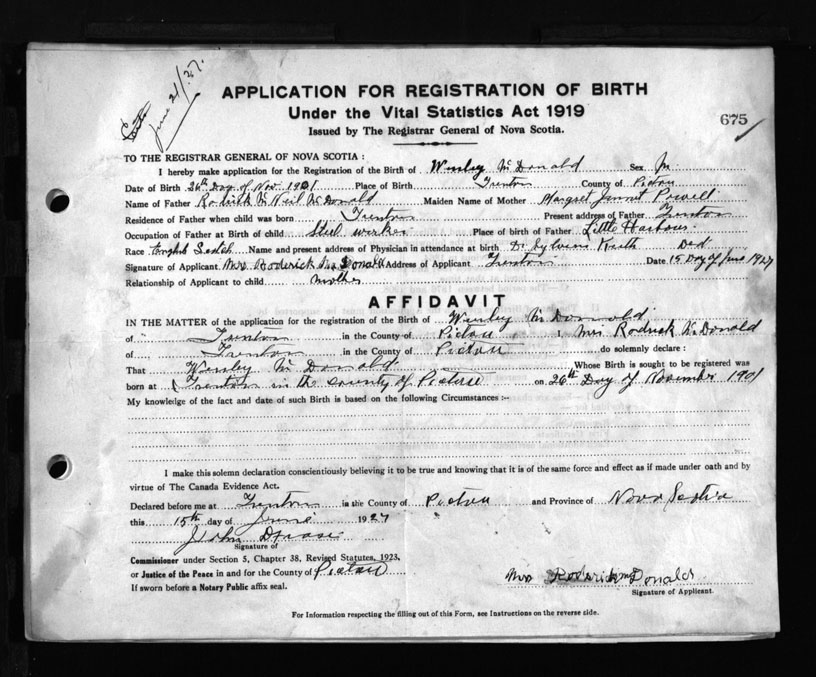 June 21/37.
APPLICATION FOR REGISTRATION OF BIRTH
Under the Vital Statistics Act 1919
675
Issued by The Registrar General of Nova Scotia.
TO THE REGISTRAR GENERAL OF NOVA SCOTIA :
I hereby make application for the Registration of the Birth of Wensley McDonald Sex M.
Date of Birth 26th Day of Nov. 1901 Place of Birth Trenton County of Pictou
Name of Father Rodrick McNeil McDonald Maiden Name of Mother Margret Powell
Residence of Father when child was born Trenton Present address of Father Trenton
Occupation of Father at Birth of child Steel worker Place of birth of Father Little Harbour
Race Name and present address of Physician in attendance at birth Dr Keith Ded
Signature of Applicant Mrs Roderick McDonald Address of Applicant Trenton Date 15 Day of June 1927
Relationship of Applicant to child mother
AFFIDAVIT
IN THE MATTER of the application for the registration of the Birth of Wensley McDonald
of Trenton in the County of Pictou I, Mrs Rodrick McDonald
of Trenton in the County of Pictou do solemnly declare :
That Wensley McDonald Whose Birth is sought to be registered was
born at Trenton in the county of Pictou on 26th Day of November 1901
My knowledge of the fact and date of such Birth is based on the following Circumstances :—
I make this solemn declaration conscientiously believing it to be true and knowing that it is of the same force and effect as if made under oath and by
virtue of The Canada Evidence Act.
Declared before me at Trenton in the County of Pictou and Province of Nova Scotia
this 15th day of June 1927
John
Signature of
Commissioner under Section 5, Chapter 38, Revised Statutes, 1923.
or Justice of the Peace in and for the County of Pictou
Mrs Roderick McDonald
If sworn before a Notary Public affix seal.
Signature of Applicant.
For Information respecting the filling out of this Form, see Instructions on the reverse side.